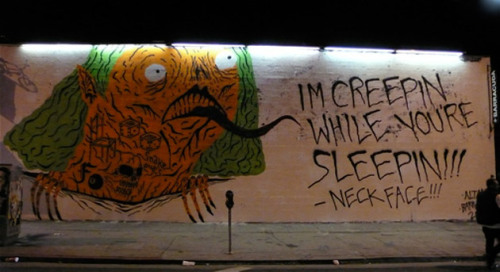 IM CREEPIN
WHILE YOU'RE
SLEEPIN!!!
- NECK FACE!!!